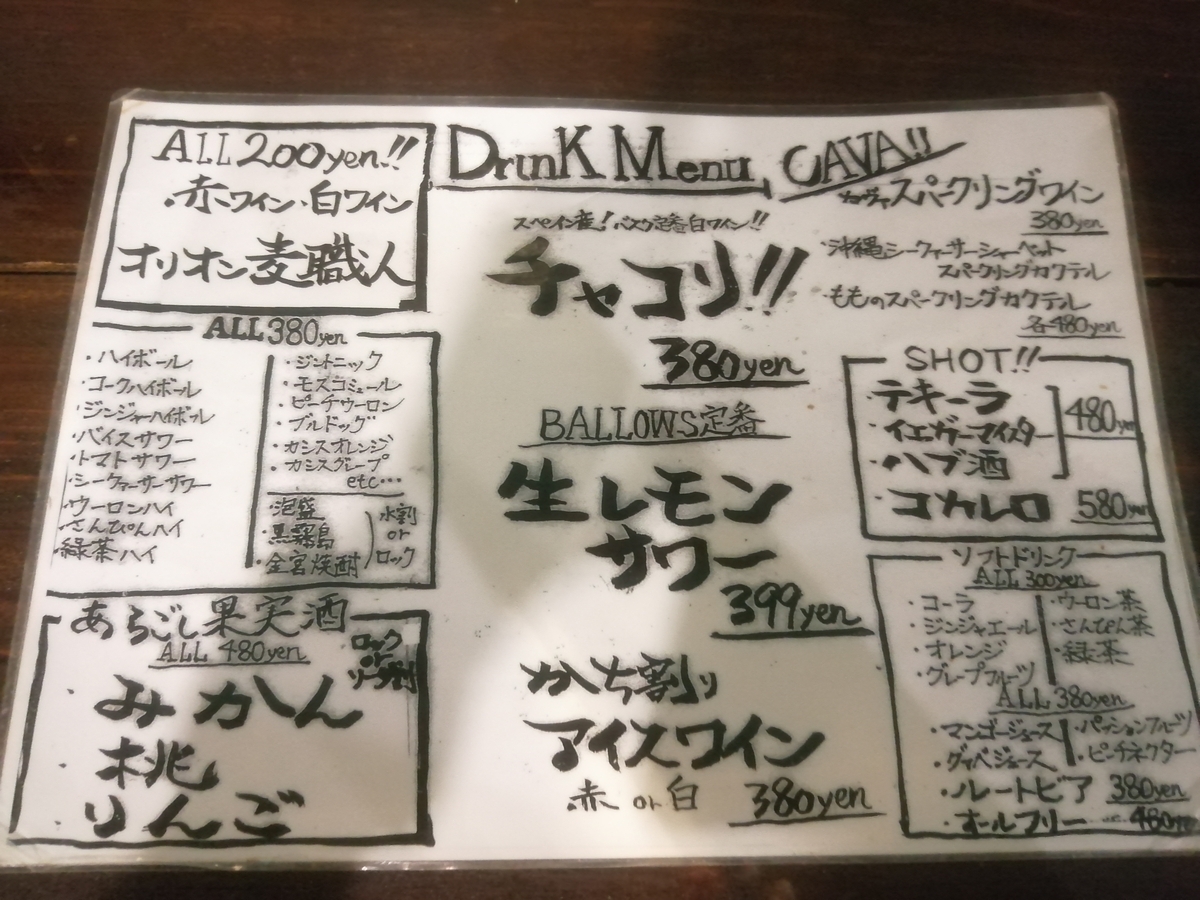 ALL 200yen!!
赤ワイン・白ワイン
オリオン麦職人
ALL 380yen
・ハイボール
・コークハイボール
・ジンジャーハイボール
・バイスサワー
・トマトサワー
・シークァーサーサワー
・ウーロンハイ
・さんぴんハイ
・緑茶ハイ
・ジントニック
・モスコミュール
・ピーチウーロン
・ブルドッグ
・カシスオレンジ
・カシスグレープ
etc…
・泡盛
・黒霧島
・金宮焼酎
水割
or
ロック
あらごし果実酒
ALL 480yen
ロック
or
ソーダ割
みかん
桃
りんご
DrinK Menu
スペイン産!バスク定番白ワイン!!
チャコリ!!
380yen
BALLOWS定番
生レモン
サワー
399yen
かち割り
アイスワイン
赤 or 白 380yen
CAVA!!
カヴァスパークリングワイン
380yen
・沖縄シークァーサーシャーベット
スパークリングカクテル
・もものスパークリングカクテル
各480yen
SHOT!!
・テキーラ
・イエガーマイスター
・ハブ酒
480yen
・コカレロ 580yen
ソフトドリンク
ALL 300yen
・コーラ
・ジンジャエール
・オレンジ
・グレープフルーツ
・ウーロン茶
・さんぴん茶
・緑茶
ALL 380yen
・マンゴージュース
・グァバジュース
・パッションフルーツ
・ピーチネクター
・ルートビア 380yen
・オールフリー … 480yen